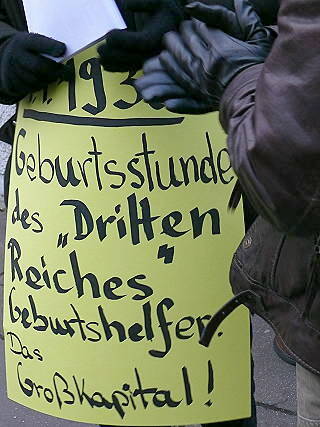 .1.193
Geburtsstunde
des „Dritten
Reiches“
Geburtshelfer:
Das
Großkapital!